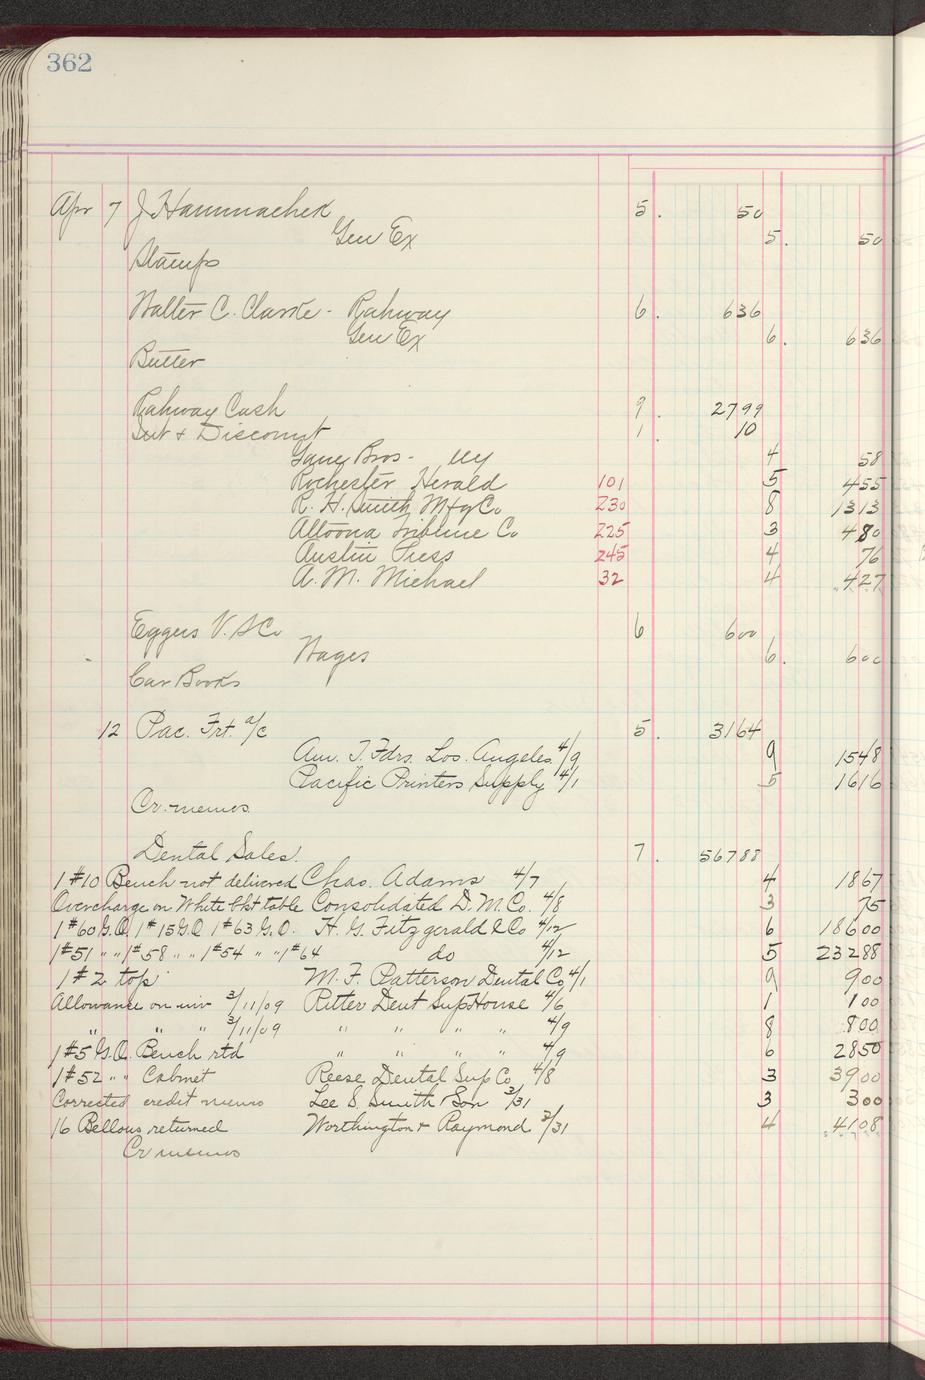 362
Apr 7 J Hammacher 5. 50
Gen Ex 5. 50
Stamps
Walter C. Clarke - Rahway 6. 636
Gen Ex 6. 636
Butter
Rahway Cash 9. 2799
Int & Discount 1. 10
Bros - 4 58
Rochester Herald 101 5 455
R. H. Smith Mfg Co 230 8 1313
Altoona Tribune Co 225 3 480
Austin Press 245 4 76
A. M. Michael 32 4 427
Eggers V. S Co 6 600
Wages 6. 600
Car Books
12 Pac. Frt. a/c 5. 3164
Am. T. Fdrs. Los. Angeles 4/9 9 1548
Pacific Printers Supply 4/1 5 1616
Cr. memos
Dental Sales. 7. 56788
1 #10 Bench not delivered Chas. Adams 4/7 4 1867
Overcharge on White bkt table Consolidated D. M. Co. 4/8 3 75
1 #60 G.O. 1 #15 G.O 1 #63 G.O. H. G. Fitzgerald & Co 4/12 6 18600
1 #51 " " 1 #58 " " 1 #54 " " 1 #64 do 4/12 5 23288
1 #2 top M. F. Patterson Dental Co 4/1 9 900
Allowance on inv 3/11/09 Ritter Dent Sup House 4/6 1 100
" " " 3/11/09 " " " " 4/9 8 800
1 #5 G.O. Bench rtd " " " " 4/9 6 2850
1 #52 " " Cabinet Reese Dental Sup Co 4/8 3 3900
Corrected credit memo Lee S. Smith & Son 3/31 3 300
16 Bellows returned Worthington & Raymond 3/31 4 4108
Cr memos